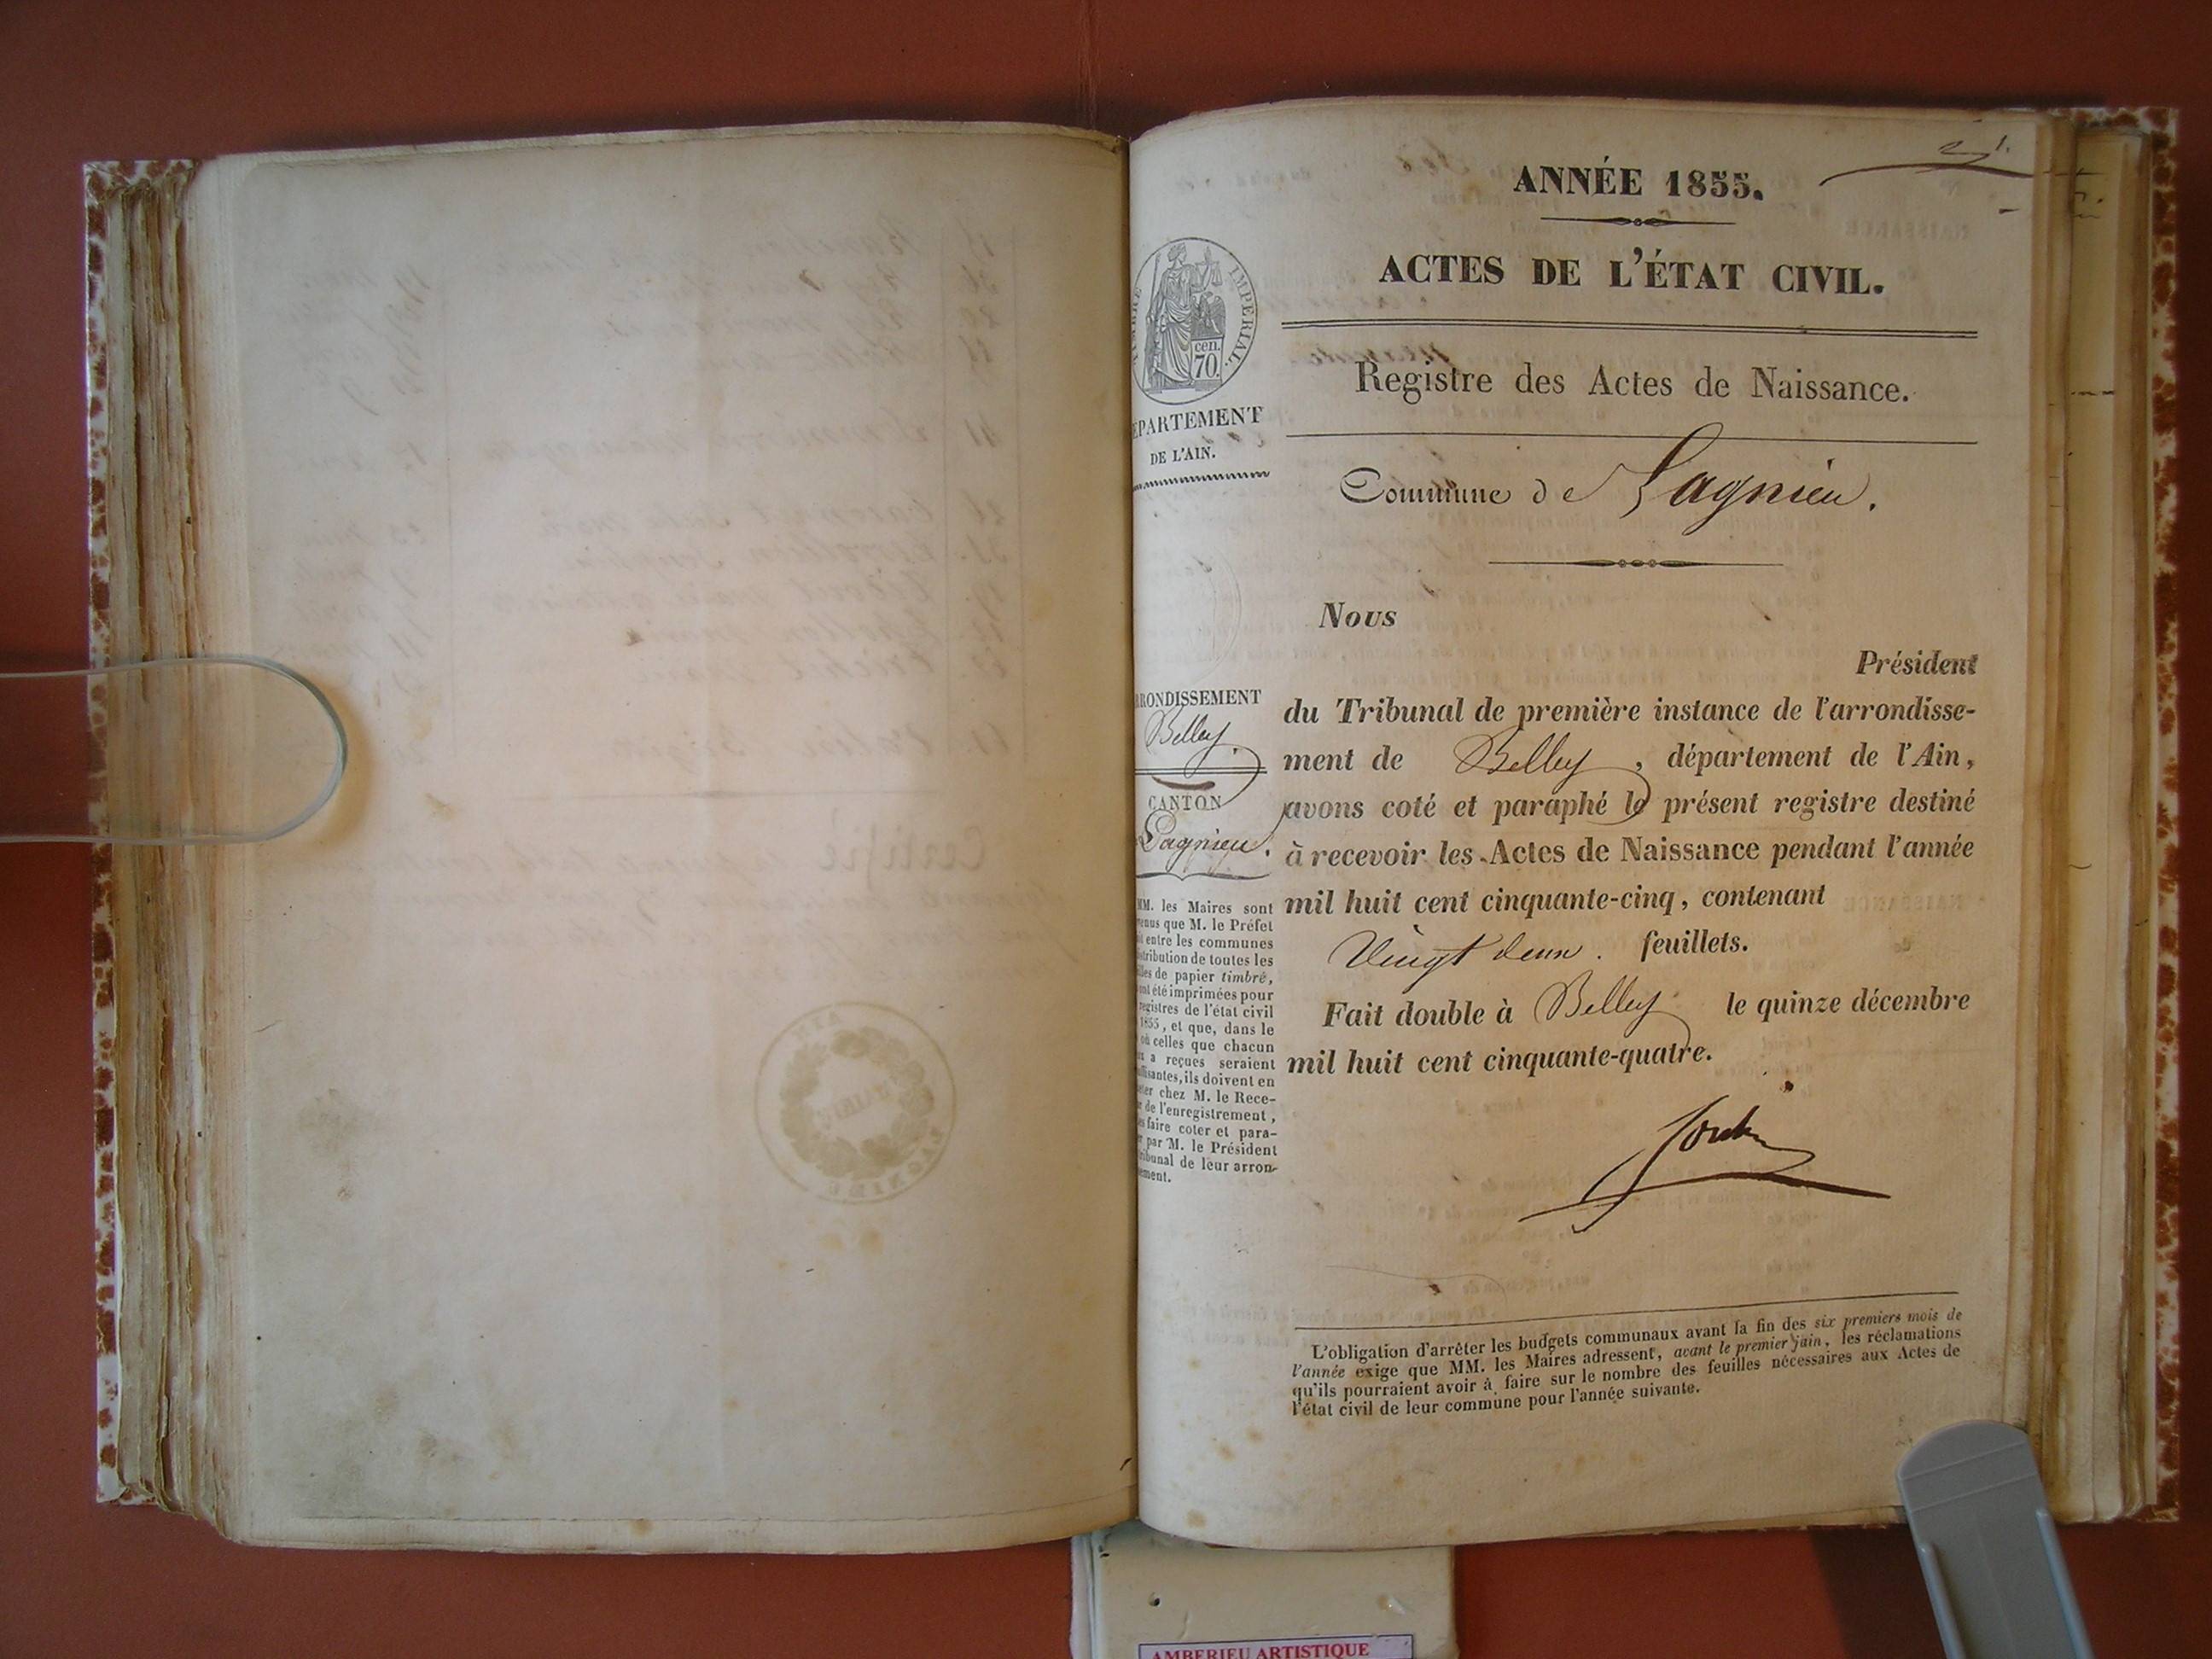 ANNÉE 1855.
ACTES DE L'ÉTAT CIVIL.
IMPÉRIAL.
cen.
70.
ÉPARTEMENT
DE L'AIN.
Registre des Actes de Naissance.
Commune de Lagnieu.
Nous
Président
du Tribunal de première instance de l'arrondisse-
ment de Belley, département de l'Ain,
avons coté et paraphé le présent registre destiné
à recevoir les Actes de Naissance pendant l'année
mil huit cent cinquante-cinq, contenant
Vingt deux. feuillets.
Fait double à Belley le quinze décembre
mil huit cent cinquante-quatre.
RRONDISSEMENT
Belley.
CANTON
Lagnieu.
MM. les Maires sont
venus que M. le Préfet
entre les communes
tribution de toutes les
lles de papier timbré,
ont été imprimées pour
registres de l'état civil
1855, et que, dans le
où celles que chacun
a reçues seraient
ffisantes, ils doivent en
eter chez M. le Rece-
r de l'enregistrement,
es faire coter et para-
r par M. le Président
ribunal de leur arron-
sement.
L'obligation d'arrêter les budgets communaux avant la fin des six premiers mois de
l'année exige que MM. les Maires adressent, avant le premier juin, les réclamations
qu'ils pourraient avoir à faire sur le nombre des feuilles nécessaires aux Actes de
l'état civil de leur commune pour l'année suivante.
AMBERIEU ARTISTIQUE